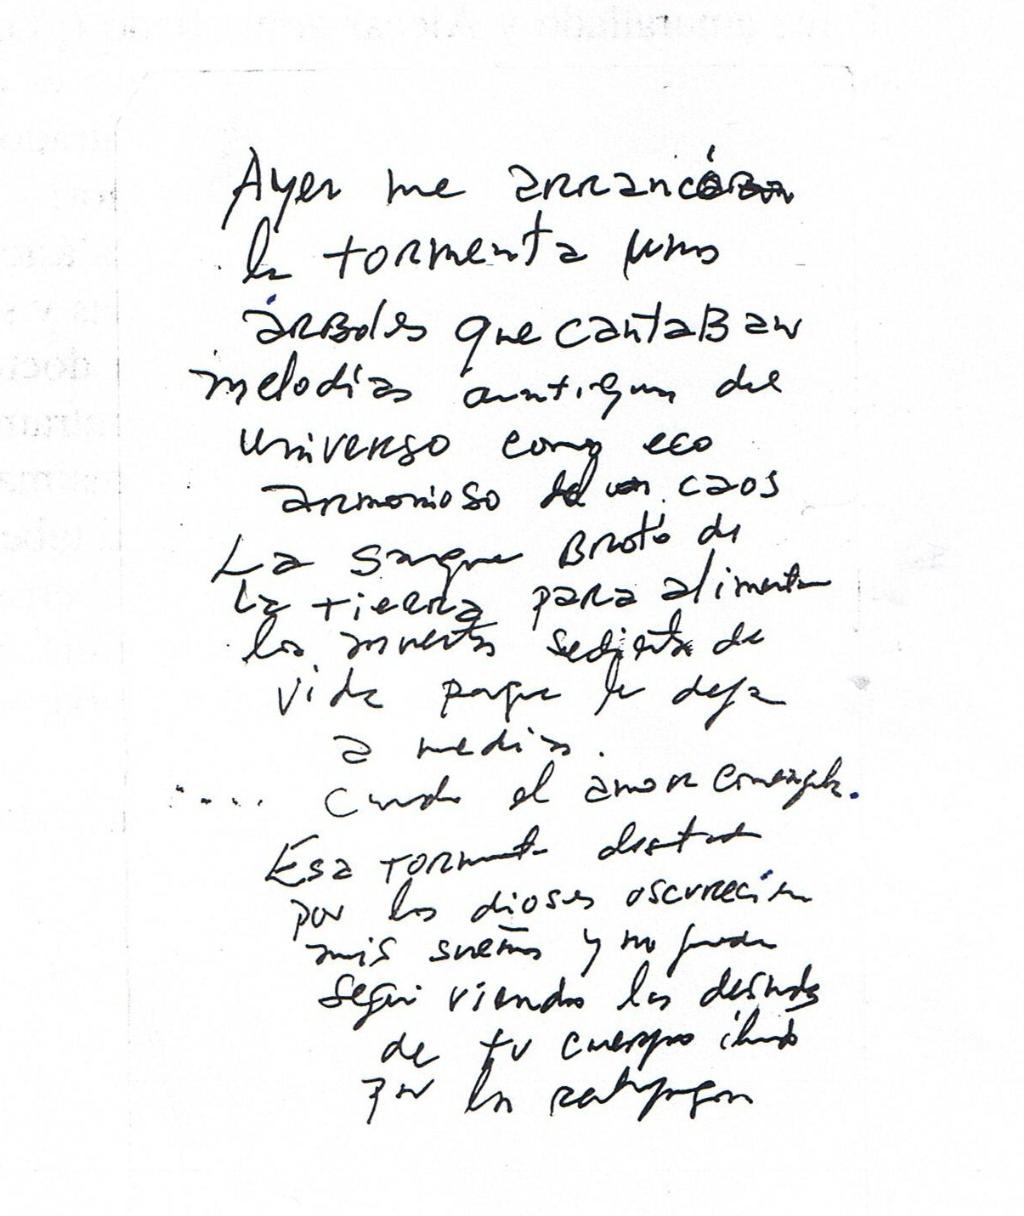 Ayer me arrancó
la tormenta unos
árboles que cantaban
melodías antiguas del
universo como eco
armonioso de un caos
La sangre Brotó de
La tierra para alimentar
los muertos sedientos de
vida porque la deja
a medias.
.... Cuando el amor
Esa tormenta
por los dioses oscurecían
mis sueños y no puedo
seguir viendo
de tu cuerpo
por los